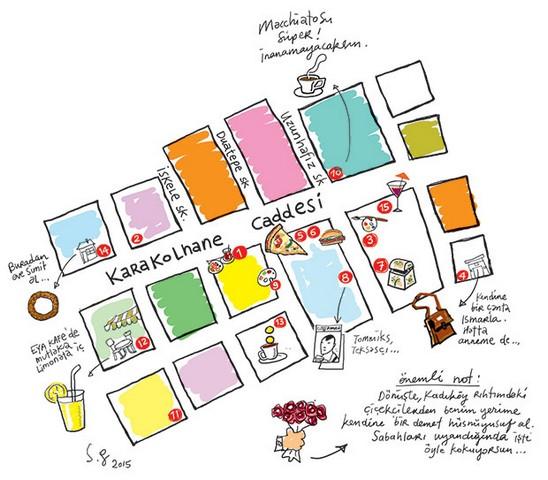 Macchiatosu
Süper!
inanamayacaksın.
İskele sk.
Duatepe sk
Uzunhafız sk
10
15
14
2
Karakolhane Caddesi
1
5 6
3
7
4
8
9
Buradan
eve simit
al...
EYA KAFE'de
mutlaka
Limonata iç
12
13
11
Tommiks,
Teksasçı...
Kendine
bir çanta
ısmarla.
Hatta
anneme de...
önemli not:
Dönüşte, Kadıköy rıhtımdaki
çiçekçilerden benim yerime
kendine bir demet hüsnüyusuf al.
Sabahları uyandığında işte
öyle kokuyorsun...
S.g 2015